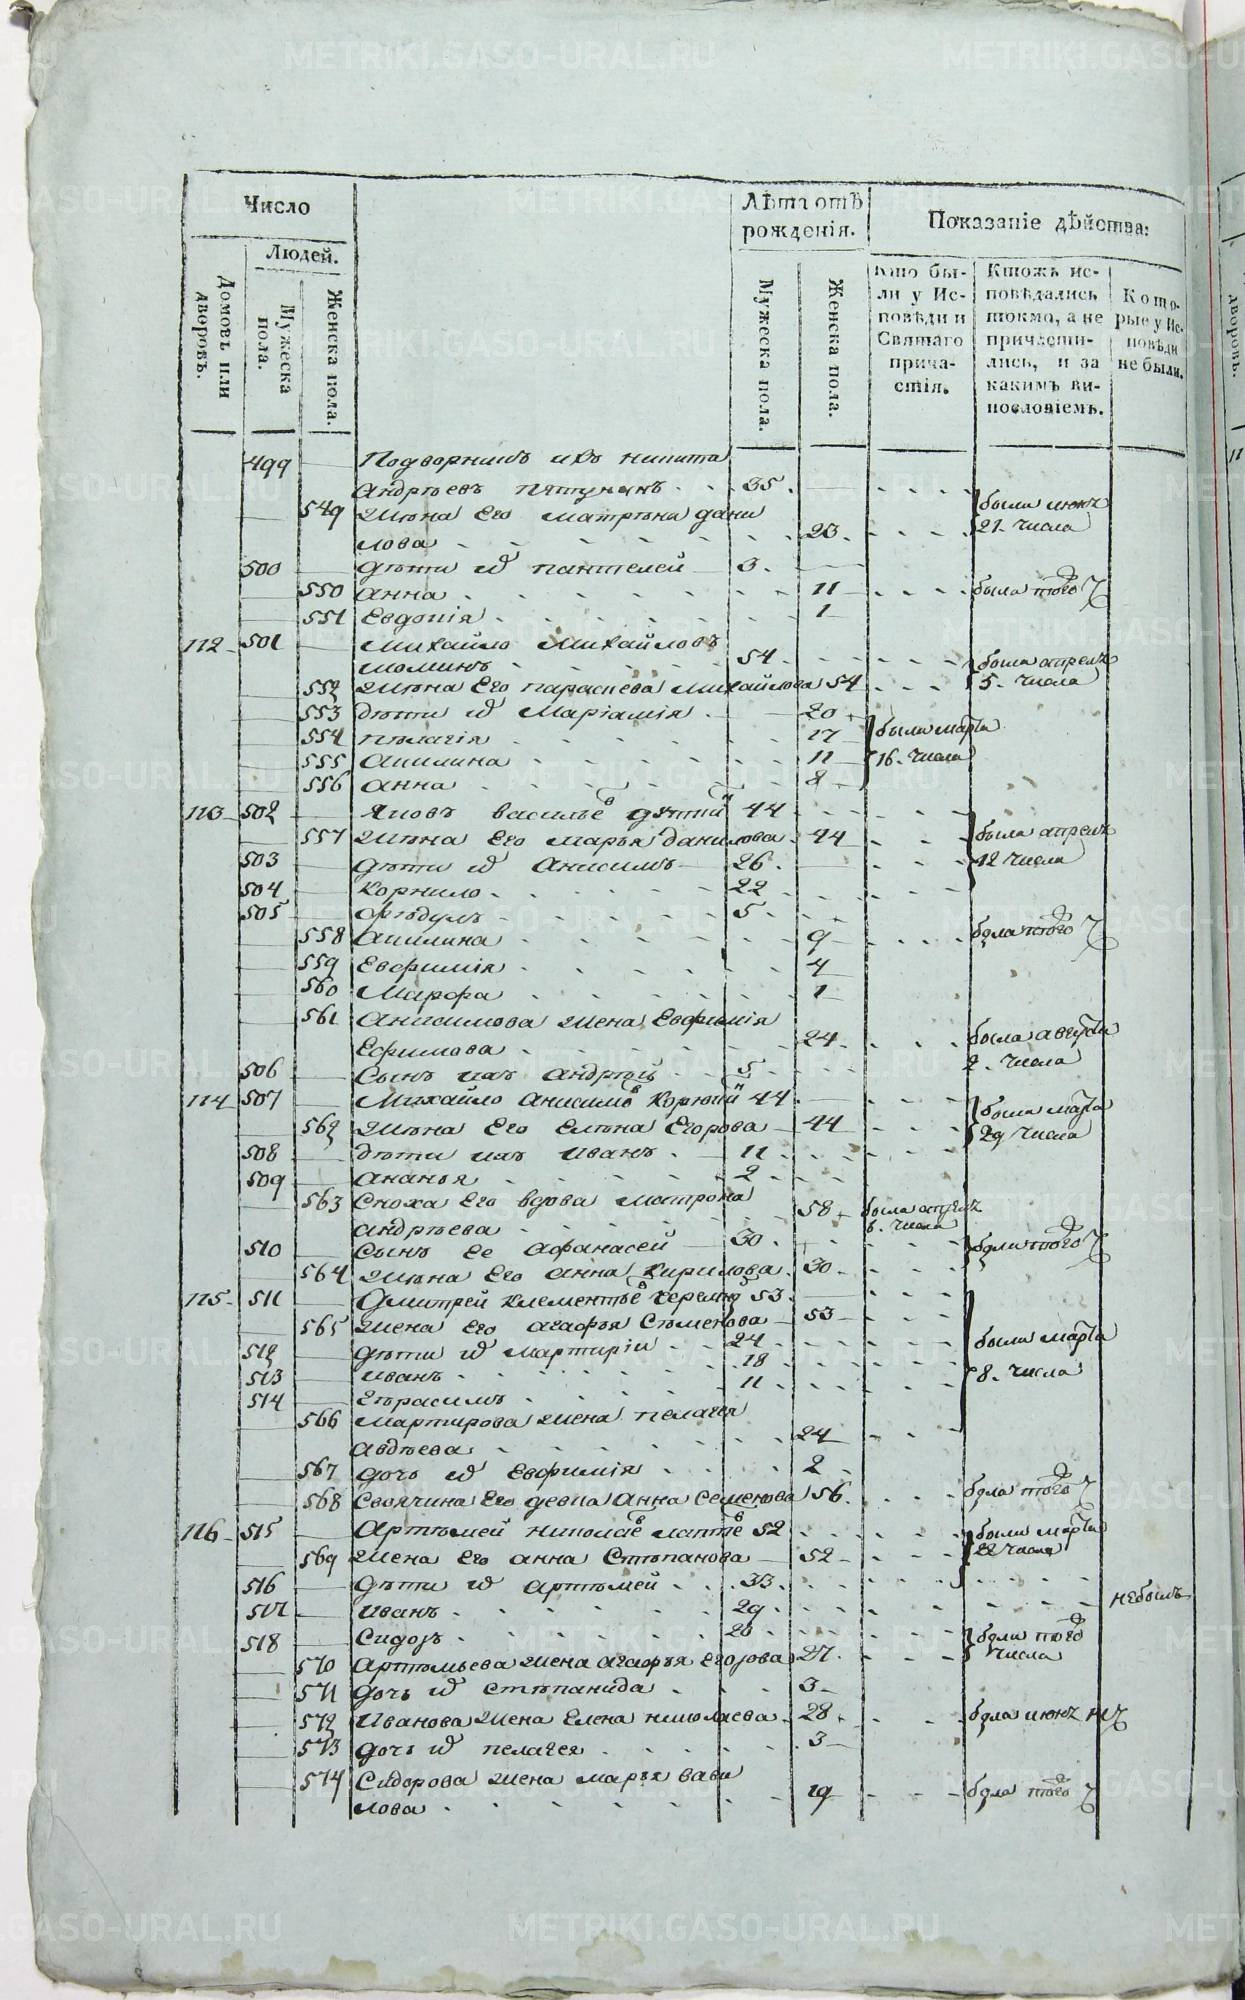 Число
Людей.
Домовъ или дворовъ.
Мужеска пола.
Женска пола.
Лѣта отъ рожденія.
Мужеска пола.
Женска пола.
Показаніе дѣйства:
Кто были у Исповѣди и Святаго причастія.
Ктожъ исповѣдались токмо, а не причастились, и за какимъ винословіемъ.
Которые у Исповѣди не были.
499 Подворникъ ихъ никита
андрѣевъ 35.
549 Жѣна Его матрѣна дани были
лова 23. 21. числа
500 дѣти ихъ пантелей 3.
550 анна 11 была того Ч
551 Евдокія 1
112 501 михайло михайловъ
54 были апреля
552 Жѣна Его параскева михайлова 54 5. числа
553 дѣти ихъ Маріамія 20
554 пѣлагія 17 были марта
555 акилина 11 16. числа
556 анна 8
113 502 яковъ васильев 44
557 Жѣна Его марья данилова 44 была апреля
503 дѣти ихъ Анисимъ 26. 12 числа
504 корнило 22
505 5.
558 акилина 9 была того Ч
559 Евфимія 4
560 Марфа 1
561 анисимова жена Евфимія
Ефимова 24 была августа
506 Сынъ ихъ андрѣй 5. 2. числа
114 507 Михайло анисимов 44 были марта
562 Жѣна Его елѣна Егорова 44 29 числа
508 дѣти ихъ иванъ 11
509 ананья 2
563 Сноха Его вдова матрона
андрѣева 58 была апреля 6. числа
510 Сынъ Ее афанасей 30. были того Ч
564 Жѣна Его анна кирилова. 30
115 511 Дмитрей клементьев 53.
565 Жена Его агафья Сѣменова 53
512 дѣти ихъ мартирій 24 были марта
513 иванъ 18 8. числа
514 Герасимъ 11
566 мартирова жена пелагея
авдѣева 24
567 дочь ихъ Евфимія 2
568 Своячина Его девка анна Семенова 56. была того Ч
116 515 Артѣмей николаев лаптев 52 были марта
569 Жена Его анна Стѣпанова 52 22 числа
516 дѣти ихъ артѣмей 33.
517 иванъ 29 небылъ
518 Сидоръ 20 были того
570 артѣмьева жена агафья егорова 27. числа
571 дочь ихъ стѣпанида 3
572 Иванова жена Елена николаева 28
573 дочь ихъ пелагея 3
574 Сидорова жена марья вави
лова 19 была того Ч
METRIKI.GASO-URAL.RU